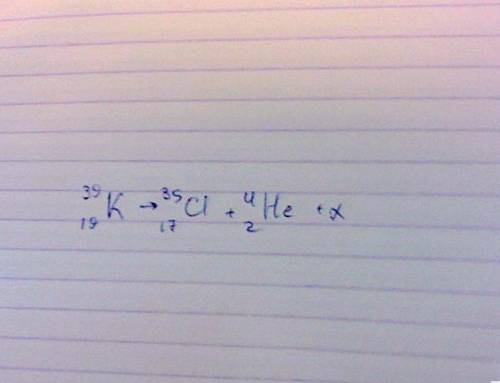 ³⁹₁₉K → ³⁵₁₇Cl + ⁴₂He + α